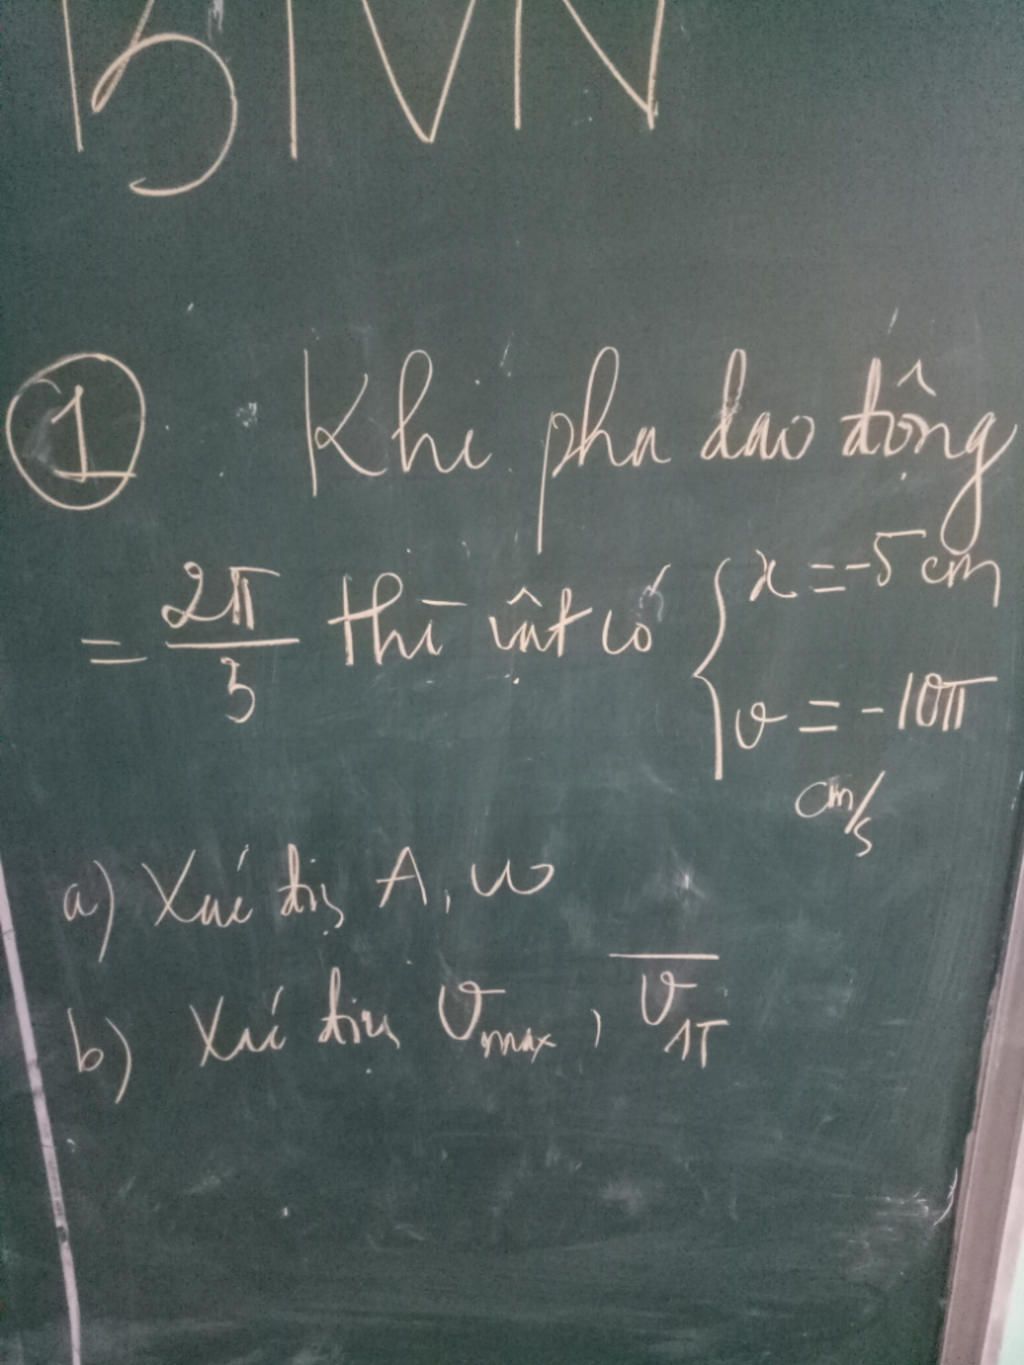 BTVN
① Khi pha dao động
= 2π/3 thì vật có { x = -5 cm
v = -10π
cm/s
a) Xác định A, ω
b) Xác định v_max, v̅_1T